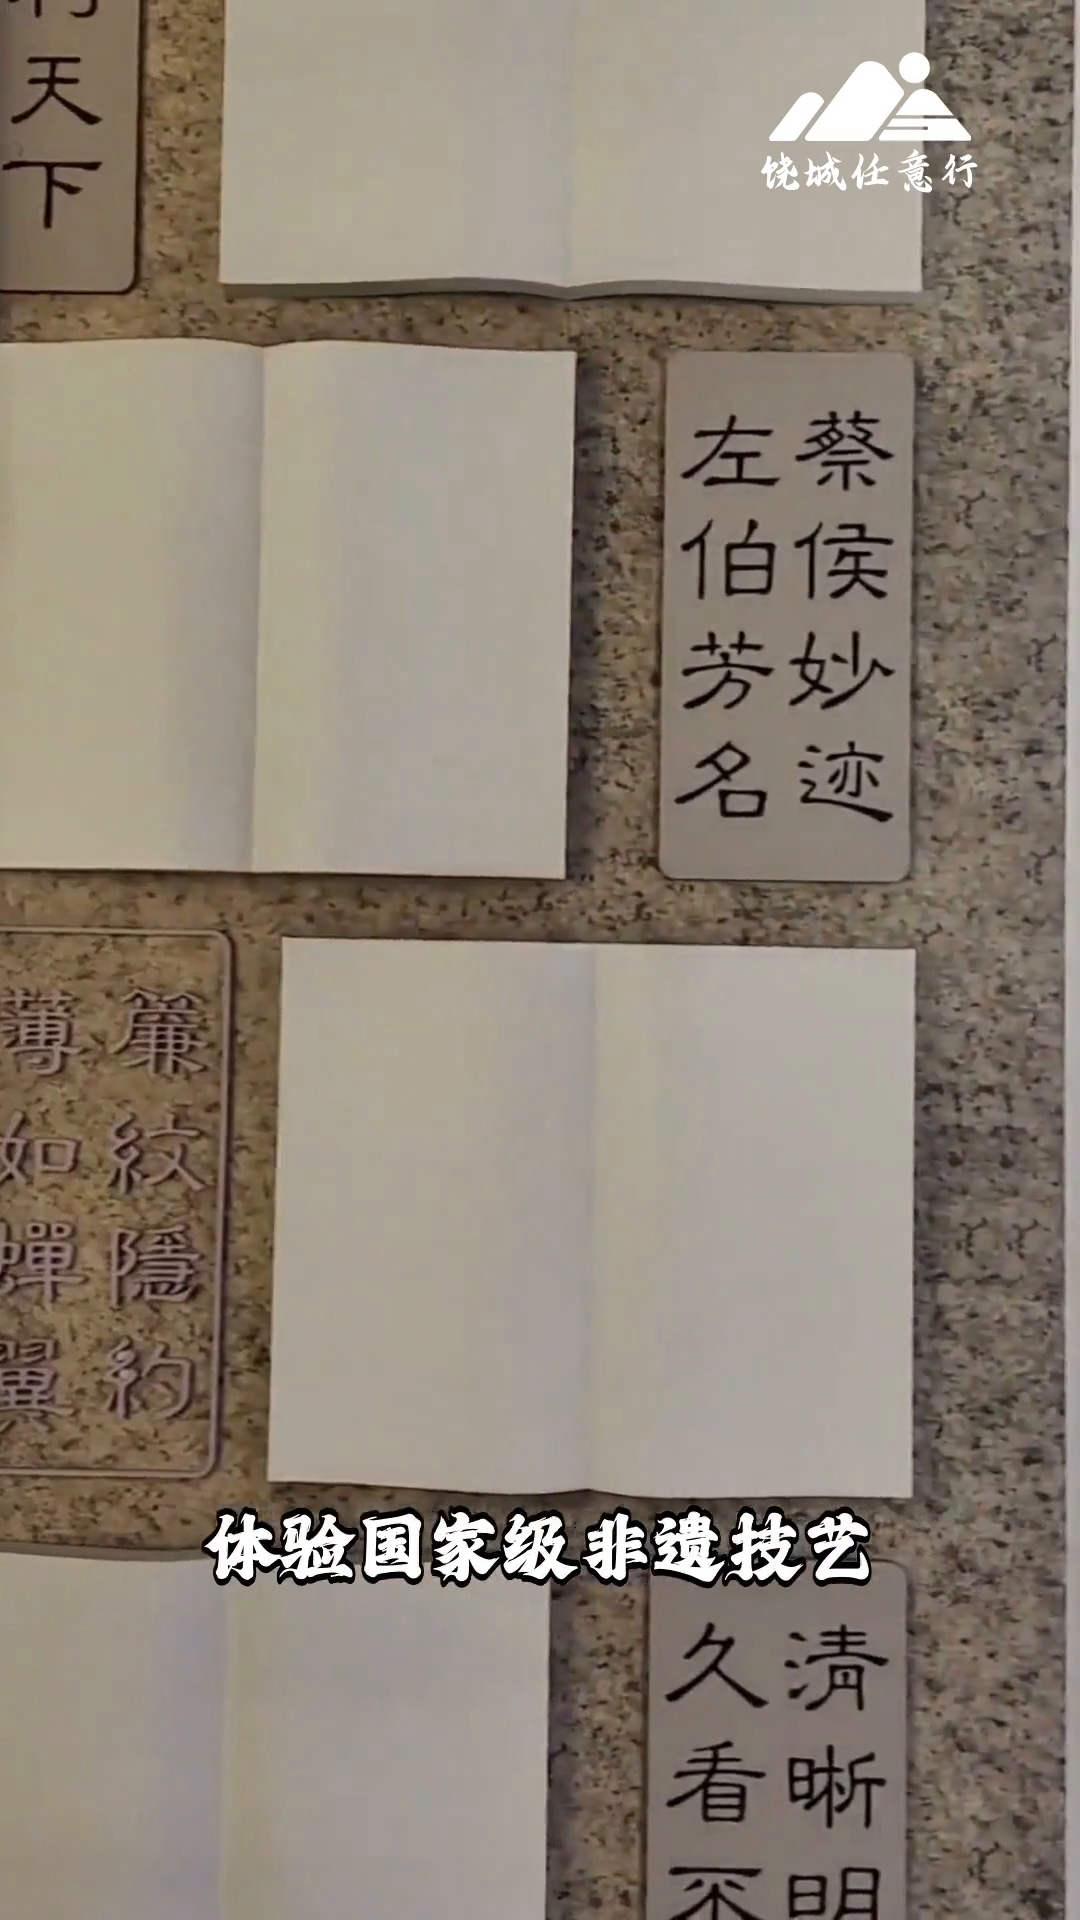 天下
饶城任意行
蔡侯妙迹
左伯芳名
簾紋隱約
薄如蟬翼
体验国家级非遗技艺
清晰明
久看不